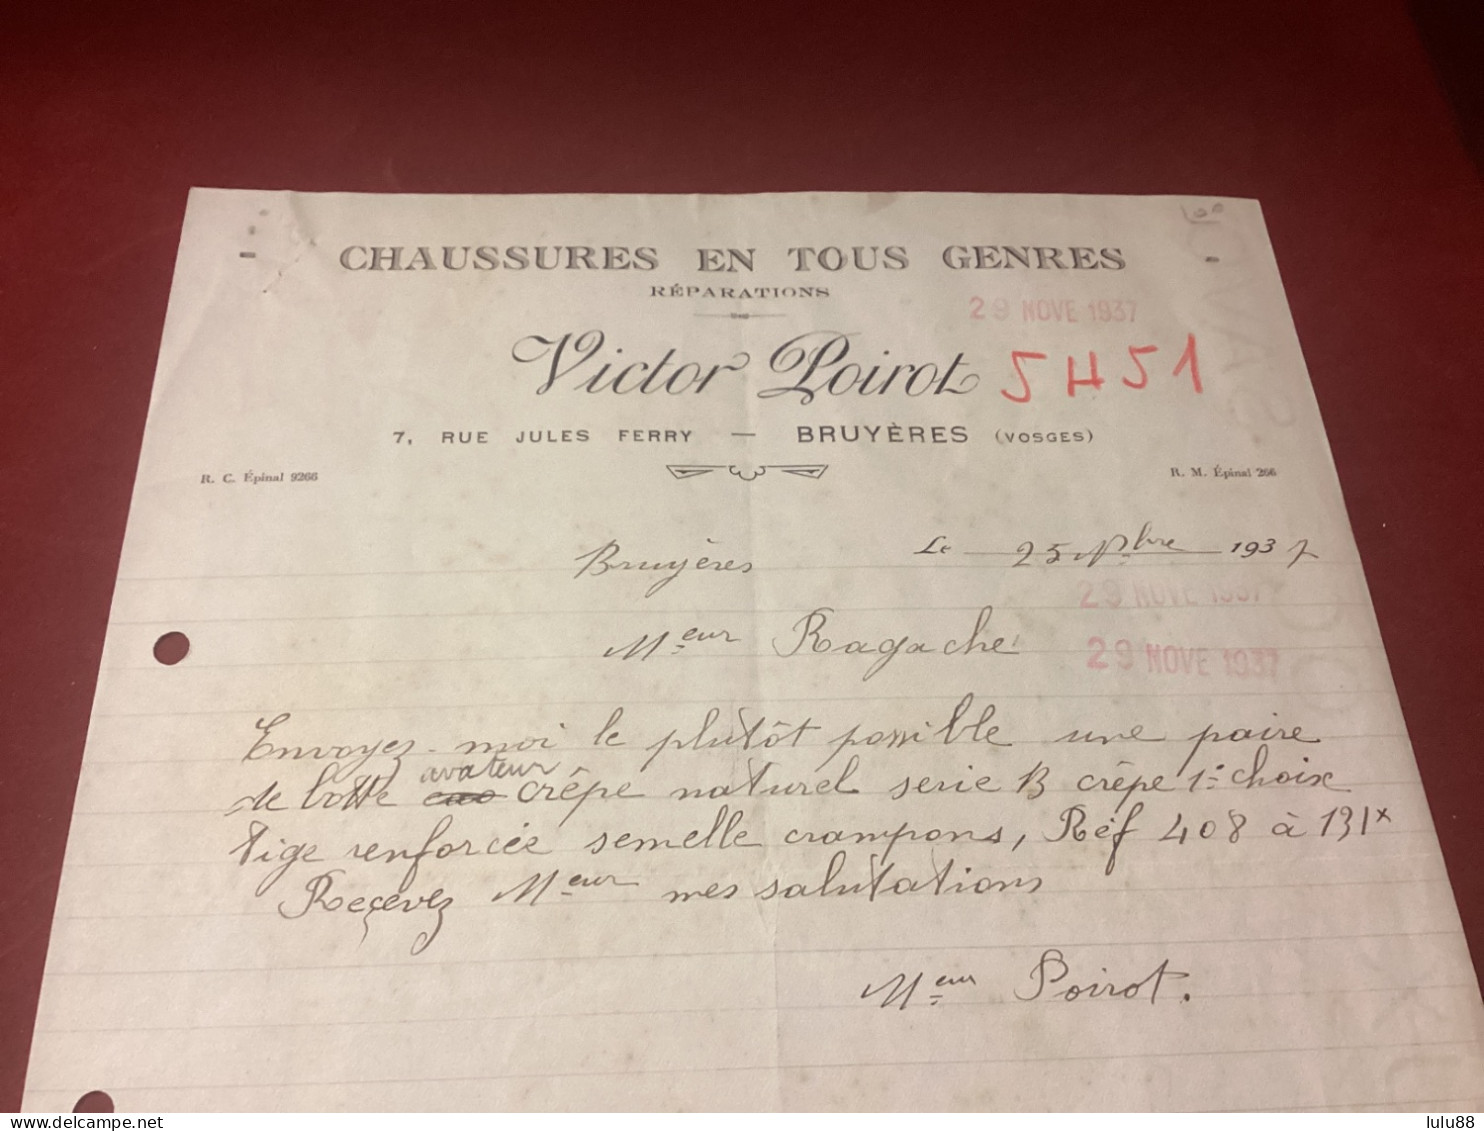 CHAUSSURES EN TOUS GENRES
RÉPARATIONS
29 NOVE 1937
Victor Poirot
5H51
7, RUE JULES FERRY — BRUYÈRES (VOSGES)
R. C. Épinal 9266
R. M. Épinal 266
Bruyères Le 25 Nbre 1937
29 NOVE 1937
Meur Ragache
29 NOVE 1937
Envoyez-moi le plutôt possible une paire
de botte avateur crêpe naturel serie B crêpe 1: choix
tige renforcée semelle crampons, Réf 408 à 131x
Reçevez Meur mes salutations
Meur Poirot.
delcampe.net
lulu88